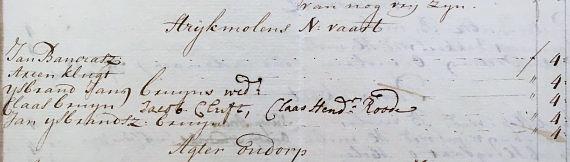 van nog vry zyn.
Strijkmolens N: vaart
Jan Bancratz f 4
Arien Klugt " 4
ysbrand Jansz Cruyns wed:e " 4
Claas Cruyn Jacob Cluft, Claas Hend:r Roode " 4
Jan ysbrandtz: Cruyn " 4
Agter Oudorp